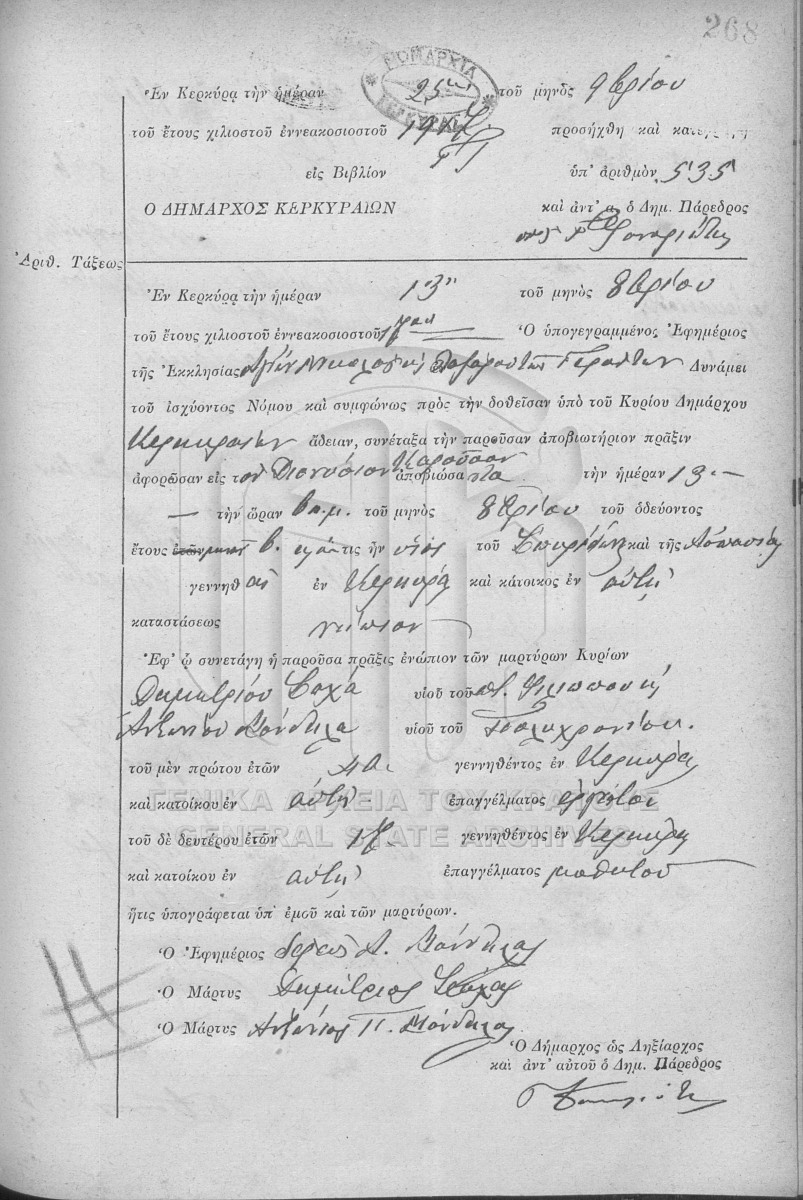 268
ΝΟΜΑΡΧΙΑ
ΚΕΡΚΥΡΑΣ
Ἐν Κερκύρᾳ τὴν ἡμέραν 25ην τοῦ μηνὸς 9βρίου
τοῦ ἔτους χιλιοστοῦ ἐννεακοσιοστοῦ προσήχθη καὶ
εἰς Βιβλίον ὑπ' ἀριθμὸν 535
Ο ΔΗΜΑΡΧΟΣ ΚΕΡΚΥΡΑΙΩΝ καὶ ἀντ' α. ὁ Δημ. Πάρεδρος
Ἀριθ. Τάξεως
Ἐν Κερκύρᾳ τὴν ἡμέραν 13ην τοῦ μηνὸς 8βρίου
τοῦ ἔτους χιλιοστοῦ ἐννεακοσιοστοῦ Ὁ ὑπογεγραμμένος Ἐφημέριος
τῆς Ἐκκλησίας Γερόντων Δυνάμει
τοῦ ἰσχύοντος Νόμου καὶ συμφώνως πρὸς τὴν δοθεῖσαν ὑπὸ τοῦ Κυρίου Δημάρχου
Κερκυραίων ἄδειαν, συνέταξα τὴν παροῦσαν ἀποβιωτήριον πρᾶξιν
ἀφορῶσαν εἰς τὸν Διονύσιον Καροῦσον ἀποβιώσαντα τὴν ἡμέραν 13
τὴν ὥραν β π.μ. τοῦ μηνὸς 8βρίου τοῦ ὁδεύοντος
ἔτους ἐτῶν β. ὅστις ἦν υἱὸς τοῦ Σπυρίδωνος καὶ τῆς Ἀσπασίας
γεννηθεὶς ἐν Κερκύρᾳ καὶ κάτοικος ἐν αὐτῇ
καταστάσεως νήπιον
Ἐφ' ᾧ συνετάγη ἡ παροῦσα πρᾶξις ἐνώπιον τῶν μαρτύρων Κυρίων
Δημητρίου υἱοῦ τοῦ
Ἀντωνίου Κόνδηλα υἱοῦ τοῦ Πολυχρονίου.
τοῦ μὲν πρώτου ἐτῶν γεννηθέντος ἐν Κερκύρᾳ
καὶ κατοίκου ἐν αὐτῇ ἐπαγγέλματος ἐργάτου
τοῦ δὲ δευτέρου ἐτῶν 17. γεννηθέντος ἐν Κερκύρᾳ
καὶ κατοίκου ἐν αὐτῇ ἐπαγγέλματος μαθητοῦ
ἥτις ὑπογράφεται ὑπ' ἐμοῦ καὶ τῶν μαρτύρων.
Ὁ Ἐφημέριος Ἱερεὺς Κόνδηλας
Ὁ Μάρτυς Δημήτριος
Ὁ Μάρτυς Ἀντώνιος Π. Κόνδηλας
Ὁ Δήμαρχος ὡς Ληξίαρχος
καὶ ἀντ' αὐτοῦ ὁ Δημ. Πάρεδρος
ΓΕΝΙΚΑ ΑΡΧΕΙΑ ΤΟΥ ΚΡΑΤΟΥΣ
GENERAL STATE ARCHIVES